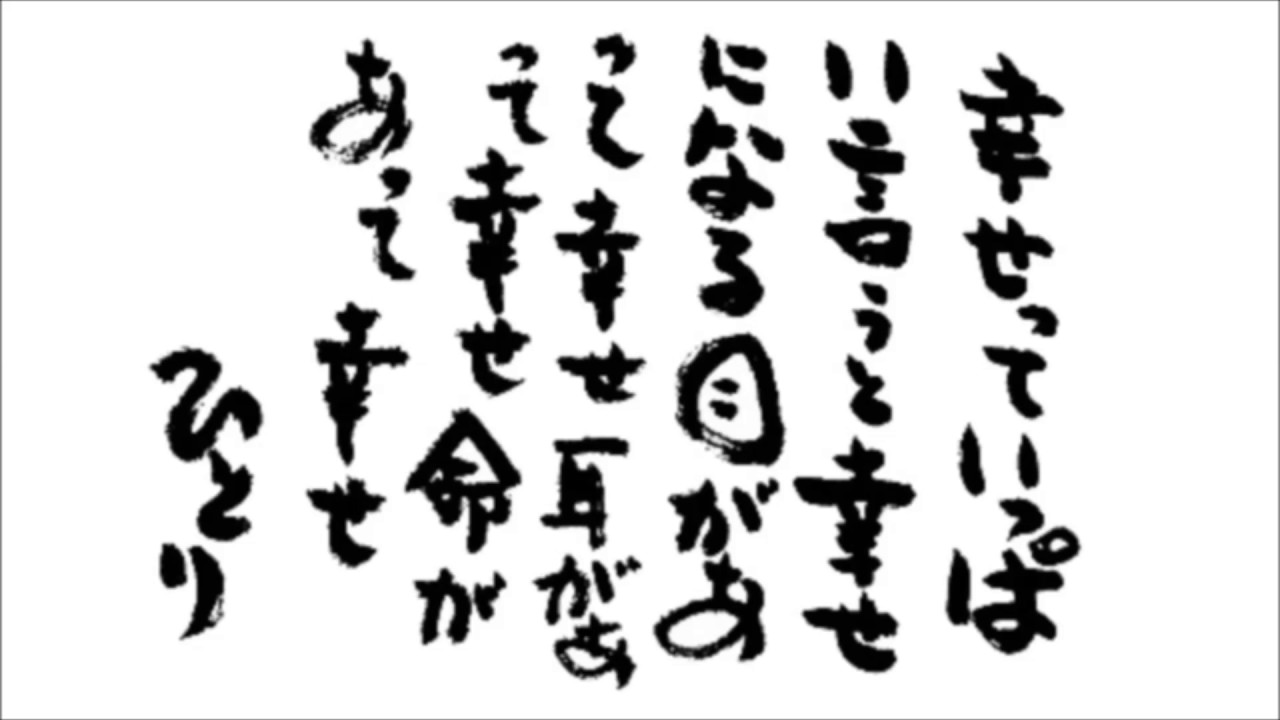 幸せっていっぱ
い言うと幸せ
になる目があ
って幸せ耳があ
って幸せ命が
あって幸せ
ひとり